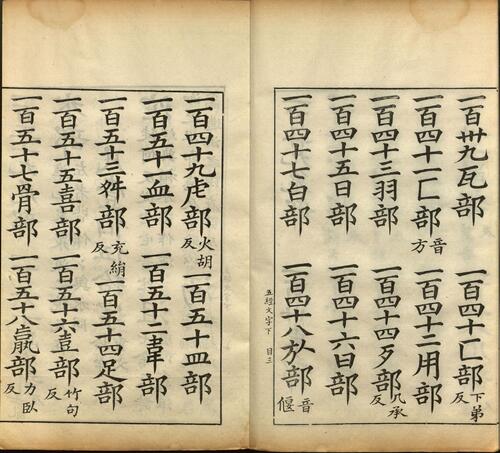 一百卅九瓦部 一百四十匸部下弟反
一百四十一匚部音方 一百四十二用部
一百四十三羽部 一百四十四歹部几承反
一百四十五日部 一百四十六曰部
一百四十七白部 一百四十八㫃部音偃
五經文字下 目三
一百四十九虍部火胡反 一百五十皿部
一百五十一血部 一百五十二韋部
一百五十三舛部充絹反 一百五十四足部
一百五十五喜部 一百五十六壴部竹句反
一百五十七骨部 一百五十八𣎆部力臥反